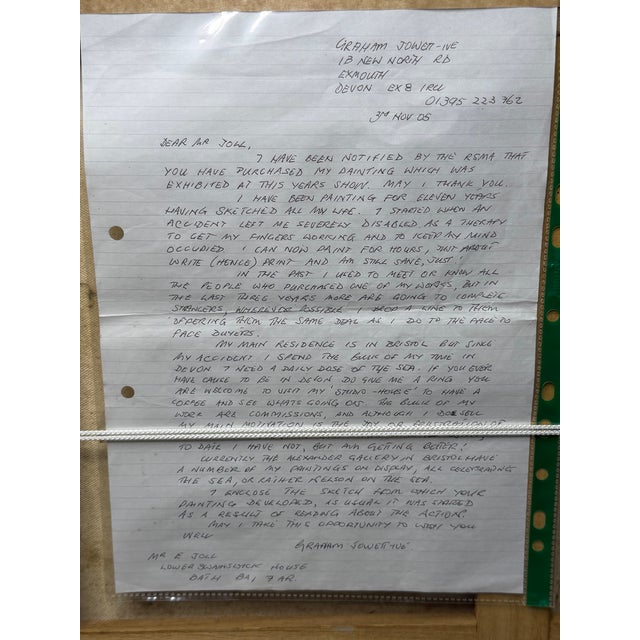 GRAHAM JOWETT-IVE
1B NEW NORTH RD
EXMOUTH
DEVON EX8 1RU
01395 223 362
3RD NOV 05
DEAR MR JOLL,
I HAVE BEEN NOTIFIED BY THE RSMA THAT
YOU HAVE PURCHASED MY PAINTING WHICH WAS
EXHIBITED AT THIS YEARS SHOW. MAY I THANK YOU.
I HAVE BEEN PAINTING FOR ELEVEN YEARS
HAVING SKETCHED ALL MY LIFE. I STARTED WHEN AN
ACCIDENT LEFT ME SEVERELY DISABLED AS A THERAPY
TO GET MY FINGERS WORKING AND TO KEEP MY MIND
OCCUPIED. I CAN NOW PAINT FOR HOURS, JUST ABOUT
WRITE (HENCE) PRINT AND AM STILL SANE, JUST!
IN THE PAST I USED TO MEET OR KNOW ALL
THE PEOPLE WHO PURCHASED ONE OF MY WORKS, BUT IN
THE LAST THREE YEARS MORE ARE GOING TO COMPLETE
STRANGERS, WHEREVER POSSIBLE I DROP A LINE TO THEM
OFFERING THEM THE SAME DEAL AS I DO TO THE FACE TO
FACE BUYERS.
MY MAIN RESIDENCE IS IN BRISTOL BUT SINCE
MY ACCIDENT I SPEND THE BULK OF MY TIME IN
DEVON I NEED A DAILY DOSE OF THE SEA. IF YOU EVER
HAVE CAUSE TO BE IN DEVON DO GIVE ME A RING YOU
ARE WELCOME TO VISIT MY 'STUDIO-HOUSE' TO HAVE A
COFFEE AND SEE WHATS GOING ON. THE BULK OF MY
WORK ARE COMMISSIONS, AND ALTHOUGH I DO SELL
MY MAIN MOTIVATION IS THE JOY OF
TO DATE I HAVE NOT, BUT AM GETTING BETTER!
CURRENTLY THE ALEXANDER GALLERY IN BRISTOL HAVE
A NUMBER OF MY PAINTINGS ON DISPLAY, ALL CELEBRATING
THE SEA, OR RATHER NELSON ON THE SEA.
I ENCLOSE THE SKETCH FROM WHICH YOUR
PAINTING DEVELOPED, AS USUAL IT WAS
AS A RESULT OF READING ABOUT THE ACTION.
MAY I TAKE THIS OPPORTUNITY TO WISH YOU
WELL
GRAHAM JOWETT-IVE
MR E JOLL
LOWER SWAINSWICK HOUSE
BATH BA1 7AR.